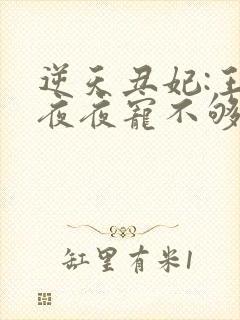 逆天丑妃:王
夜夜宠不够
缸里有米1